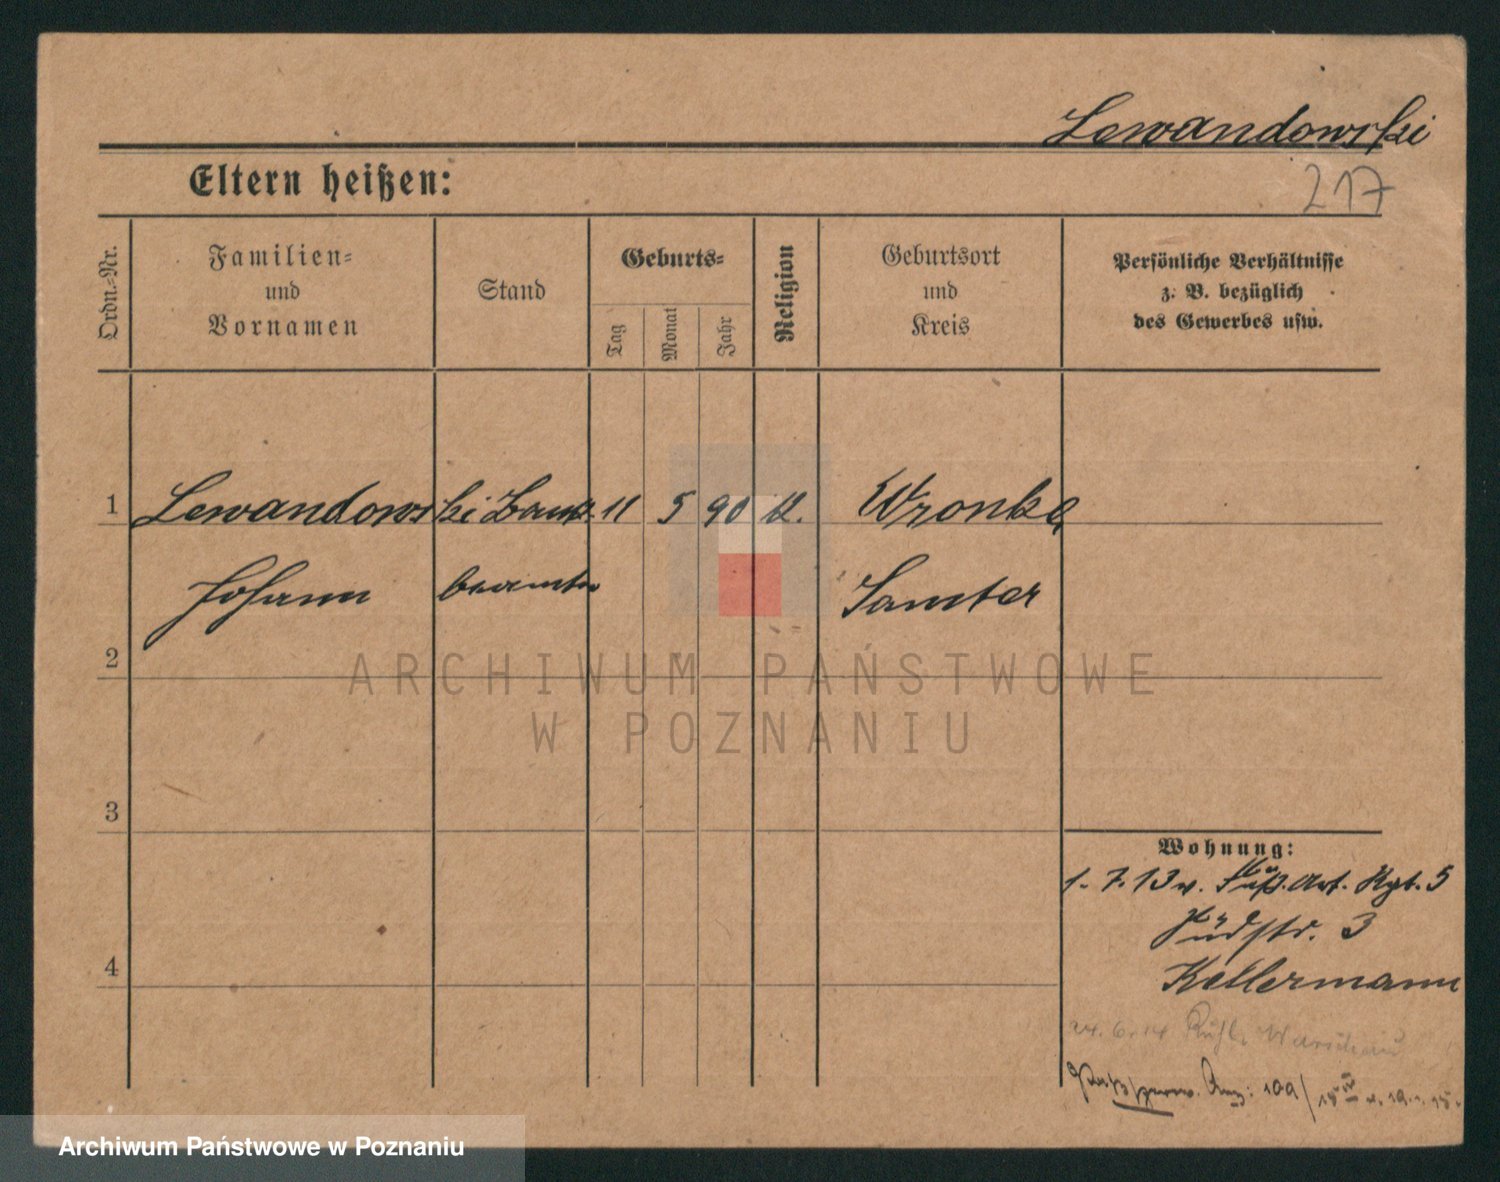 Lewandowski
217
Eltern heißen:
Ordn.-Nr.
Familien-
und
Vornamen
Stand
Geburts-
Tag
Monat
Jahr
Religion
Geburtsort
und
Kreis
Persönliche Verhältnisse
z. B. bezüglich
des Gewerbes usw.
1 Lewandowski Bank 11 5 90 k. Wronke
Johann beamter Samter
2
ARCHIWUM PAŃSTWOWE
W POZNANIU
3
Wohnung:
1. 7. 13 v. Fuß. Art. Rgt. 5
Südstr. 3
4
Kellermann
24. 6. 14 Warschau
Archiwum Państwowe w Poznaniu